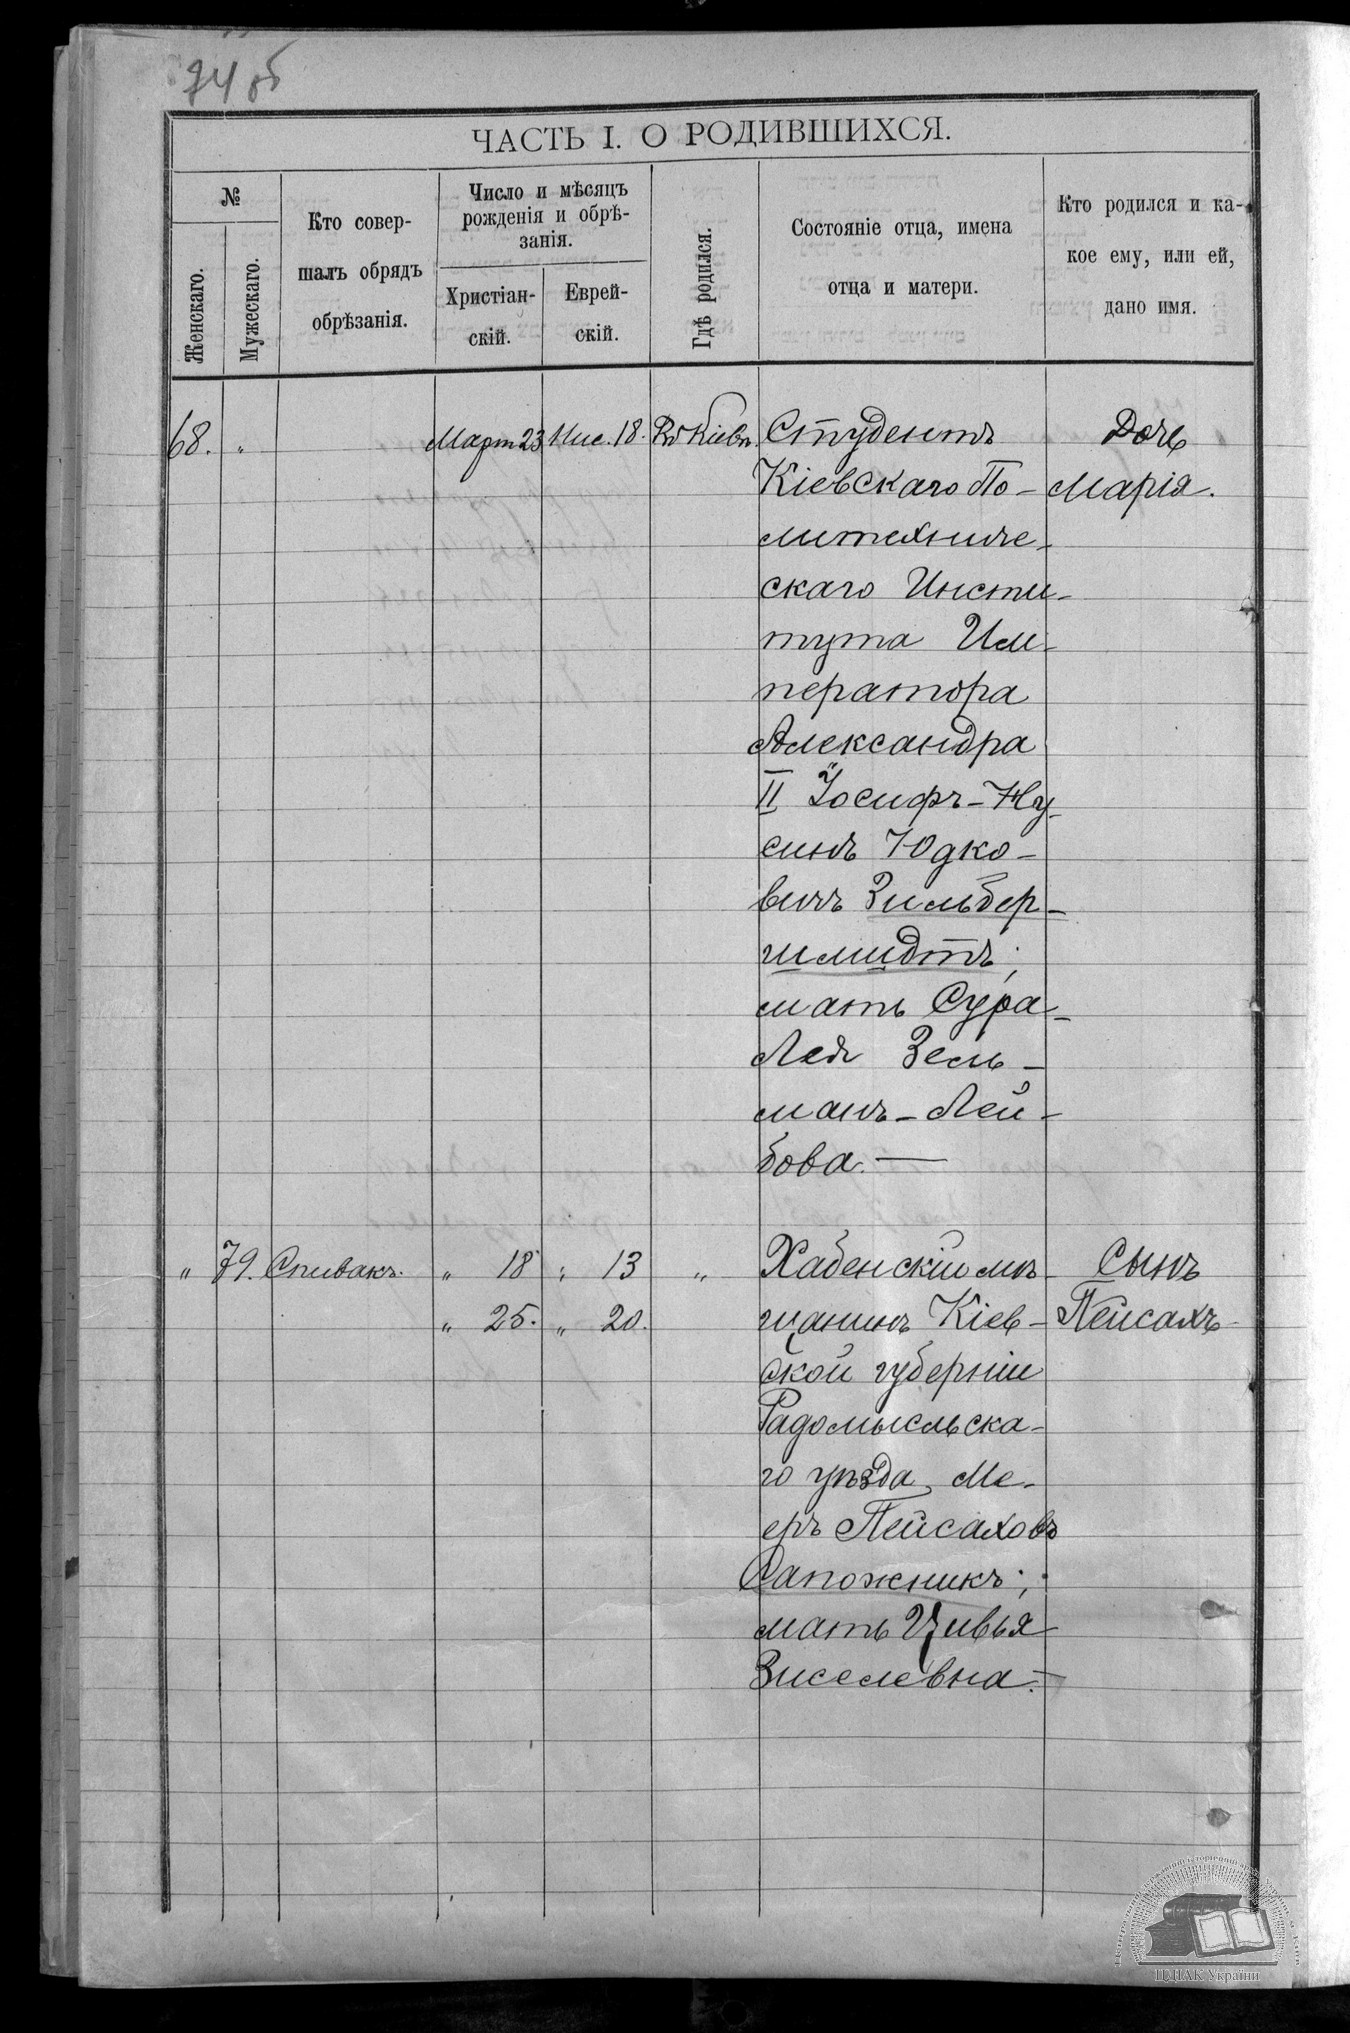 74 об
ЧАСТЬ I. О РОДИВШИХСЯ.
№
Женскаго.
Мужескаго.
Кто совер-
шалъ обрядъ
обрѣзанія.
Число и мѣсяцъ
рожденія и обрѣ-
занія.
Христіан-
скій.
Еврей-
скій.
Гдѣ родился.
Состояніе отца, имена
отца и матери.
Кто родился и ка-
кое ему, или ей,
дано имя.
68. „ Март 23 Нис. 18. Въ Кіевѣ. Студентъ Дочь
Кіевскаго По- Марія.
литехниче-
скаго Инсти-
тута Им-
ператора
Александра
II Іосифъ-Ну-
синъ Юдко-
вичъ Зильбер-
шмидтъ;
мать Сура-
Лея Зель-
манъ-Лей-
бова. —
„ 79. Спивакъ. „ 18 „ 13 „ Хабенскій мѣ- Сынъ
„ 25. „ 20. щанинъ Кіев- Пейсахъ
ской губерніи
Радомысльска-
го уѣзда, Ме-
еръ Пейсаховъ
Сапожникъ;
мать Цивья
Зиселевна. —
ЦДІАК України